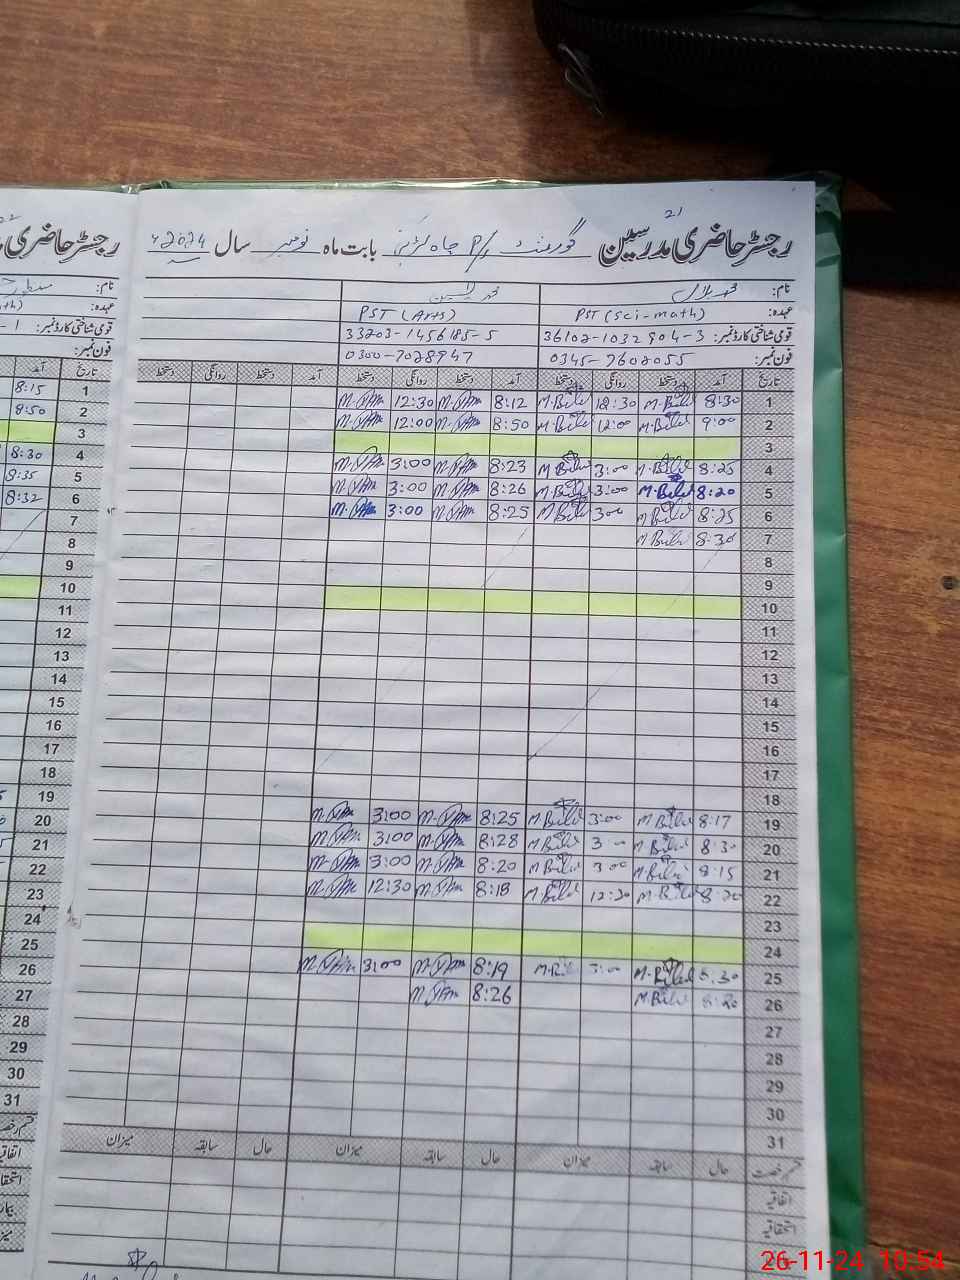 رجسٹر حاضری مدرسین گورنمنٹ P/S چاہ بابت ماہ نومبر سال 2024ء
21
نام: محمد بلال محمد یٰسین
عہدہ: PST (Sci-math) PST (Arts)
قومی شناختی کارڈ نمبر: 36102-1032904-3 33203-1456185-5
فون نمبر: 0345-7602055 0300-7028947
تاریخ آمد دستخط روانگی دستخط آمد دستخط روانگی دستخط آمد دستخط روانگی دستخط
1 8:30 M.Bilal 12:30 M.Bilal 8:12 12:30
2 9:00 M.Bilal 12:00 M.Bilal 8:50 12:00
3
4 8:25 M.Bilal 3:00 M.Bilal 8:23 3:00
5 8:20 M.Bilal 3:00 M.Bilal 8:26 3:00
6 8:25 M.Bilal 300 M.Bilal 8:25 3:00
7 8:30 M.Bilal
8
9
10
11
12
13
14
15
16
17
18
19 8:17 M.Bilal 3:00 M.Bilal 8:25 3:00
20 8:30 M.Bilal 3:00 M.Bilal 8:28 3:00
21 8:15 M.Bilal 3:00 M.Bilal 8:20 3:00
22 8:20 M.Bilal 12:20 M.Bilal 8:18 12:30
23
24
25 8:30 M.Bilal 3:00 M.Bilal 8:19 3:00
26 8:20 M.Bilal 8:26
27
28
29
30
31
قسم رخصت حال سابقہ میزان حال سابقہ میزان حال سابقہ میزان
اتفاقیہ
استحقاقیہ
رجسٹر حاضری
نام:
عہدہ:
قومی شناختی کارڈ نمبر:
فون نمبر:
تاریخ آمد
1 8:15
2 8:50
3
4 8:30
5 8:35
6 8:32
7
8
9
10
11
12
13
14
15
16
17
18
19
20
21
22
23
24
25
26
27
28
29
30
31
26-11-24 10:54